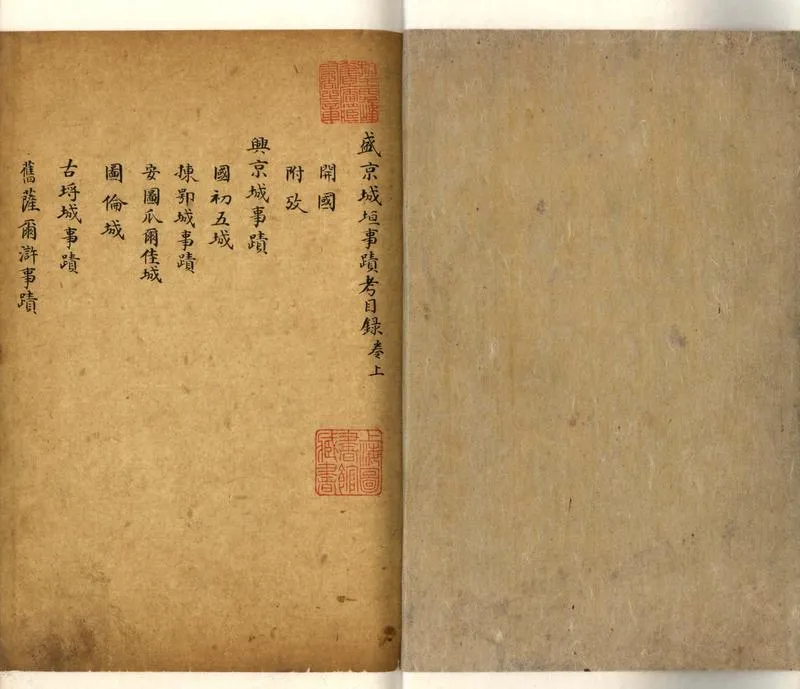 盛京城垣事蹟考目錄 卷上
開國
附攷
興京城事蹟
國初五城
揀鄂城事蹟
安圖瓜爾佳城
圖倫城
古埒城事蹟
舊薩爾滸事蹟
上海圖書館藏書